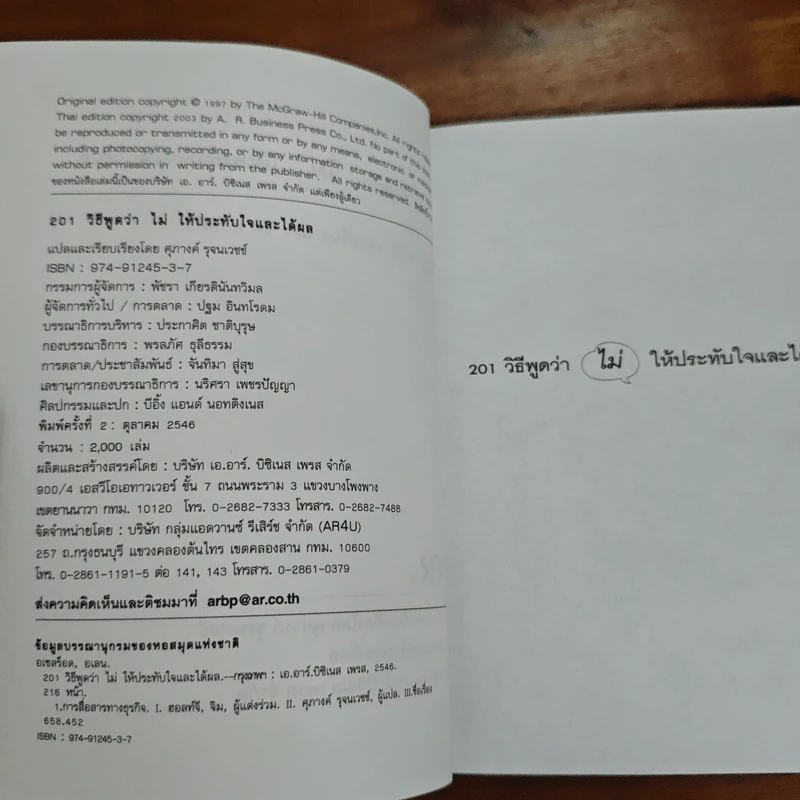 Original edition copyright © 1997 by The McGraw-Hill Companies,Inc. All rights
Thai edition copyright 2003 by A. R. Business Press Co., Ltd. No part of this
be reproduced or transmitted in any form or by any means, electronic or
including photocopying, recording, or by any information storage and retrieval
without permission in writing from the publisher. All rights reserved.
ของหนังสือเล่มนี้เป็นของบริษัท เอ. อาร์. บิซิเนส เพรส จำกัด แต่เพียงผู้เดียว
201 วิธีพูดว่า ไม่ ให้ประทับใจและได้ผล
แปลและเรียบเรียงโดย ศุภางค์ รุจนเวชช์
ISBN : 974-91245-3-7
กรรมการผู้จัดการ : พัชรา เกียรตินันทวิมล
ผู้จัดการทั่วไป / การตลาด : ปฐม อินทโรดม
บรรณาธิการบริหาร : ประกาศิต ชาติบุรุษ
กองบรรณาธิการ : พรลภัศ ธุลีธรรม
การตลาด/ประชาสัมพันธ์ : จันทิมา สู่สุข
เลขานุการกองบรรณาธิการ : นริศรา เพชรปัญญา
ศิลปกรรมและปก : บีอิ้ง แอนด์ นอทติงเนส
พิมพ์ครั้งที่ 2 : ตุลาคม 2546
จำนวน : 2,000 เล่ม
ผลิตและสร้างสรรค์โดย : บริษัท เอ.อาร์. บิซิเนส เพรส จำกัด
900/4 เอสวีโอเอทาวเวอร์ ชั้น 7 ถนนพระราม 3 แขวงบางโพงพาง
เขตยานนาวา กทม. 10120 โทร. 0-2682-7333 โทรสาร. 0-2682-7488
จัดจำหน่ายโดย : บริษัท กลุ่มแอดวานซ์ รีเสิร์ช จำกัด (AR4U)
257 ถ.กรุงธนบุรี แขวงคลองต้นไทร เขตคลองสาน กทม. 10600
โทร. 0-2861-1191-5 ต่อ 141, 143 โทรสาร. 0-2861-0379
ส่งความคิดเห็นและติชมมาที่ arbp@ar.co.th
ข้อมูลบรรณานุกรมของหอสมุดแห่งชาติ
อเซลร็อด, อเลน.
201 วิธีพูดว่า ไม่ ให้ประทับใจและได้ผล.--กรุงเทพฯ : เอ.อาร์.บิซิเนส เพรส, 2546.
216 หน้า.
1.การสื่อสารทางธุรกิจ. I. ฮอลท์จี, จิม, ผู้แต่งร่วม. II. ศุภางค์ รุจนเวชช์, ผู้แปล. III.ชื่อเรื่อง
658.452
ISBN : 974-91245-3-7
201 วิธีพูดว่า ไม่ ให้ประทับใจและได้